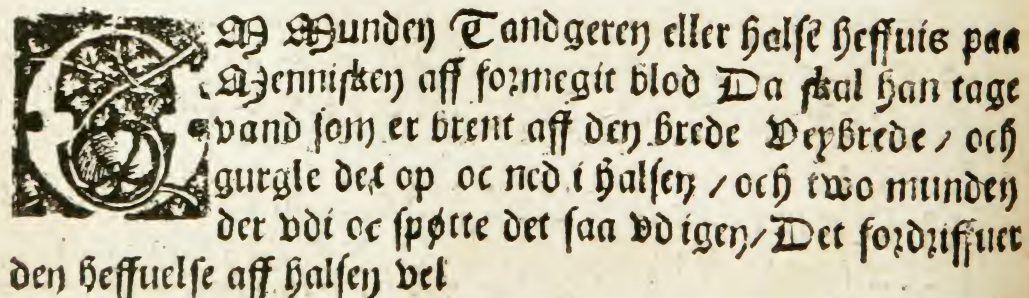 EM Munden Tandgeren eller halse heffuis paa
Mennisken aff formegit blod Da skal han tage
vand som er brent aff den brede Veybrede / och
gurgle det op oc ned i halsen / och two munden
der vdi oc spøtte det saa vd igen / Det fordriffuer
den heffuelse aff halsen vel